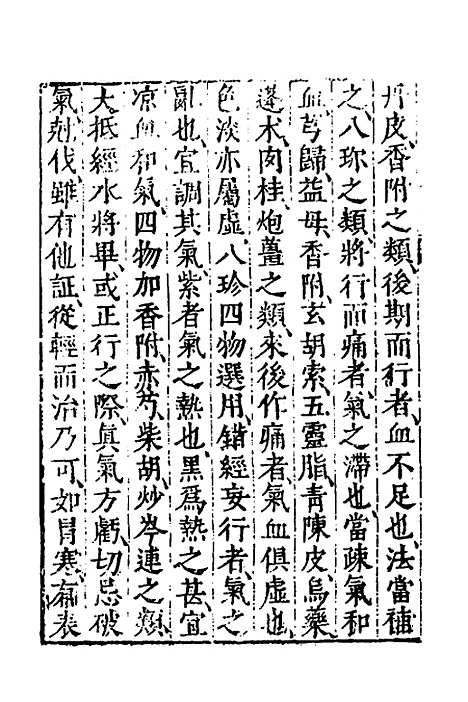 丹皮香附之類後期而行者血不足也法當補
之八珎之類將行而痛者氣之滯也當疎氣和
血芎歸益母香附玄胡索五靈脂青陳皮烏藥
蓬术肉桂炮薑之類來後作痛者氣血俱虛也
色淡亦屬虛八珍四物選用錯經妄行者氣之
亂也宜調其氣紫者氣之熱也黑爲熱之甚宜
凉血和氣四物加香附赤芍柴胡炒芩連之類
大抵經水將畢或正行之際眞氣方虧切忌破
氣尅伐雖有他証從輕而治乃可如胃寒痛表